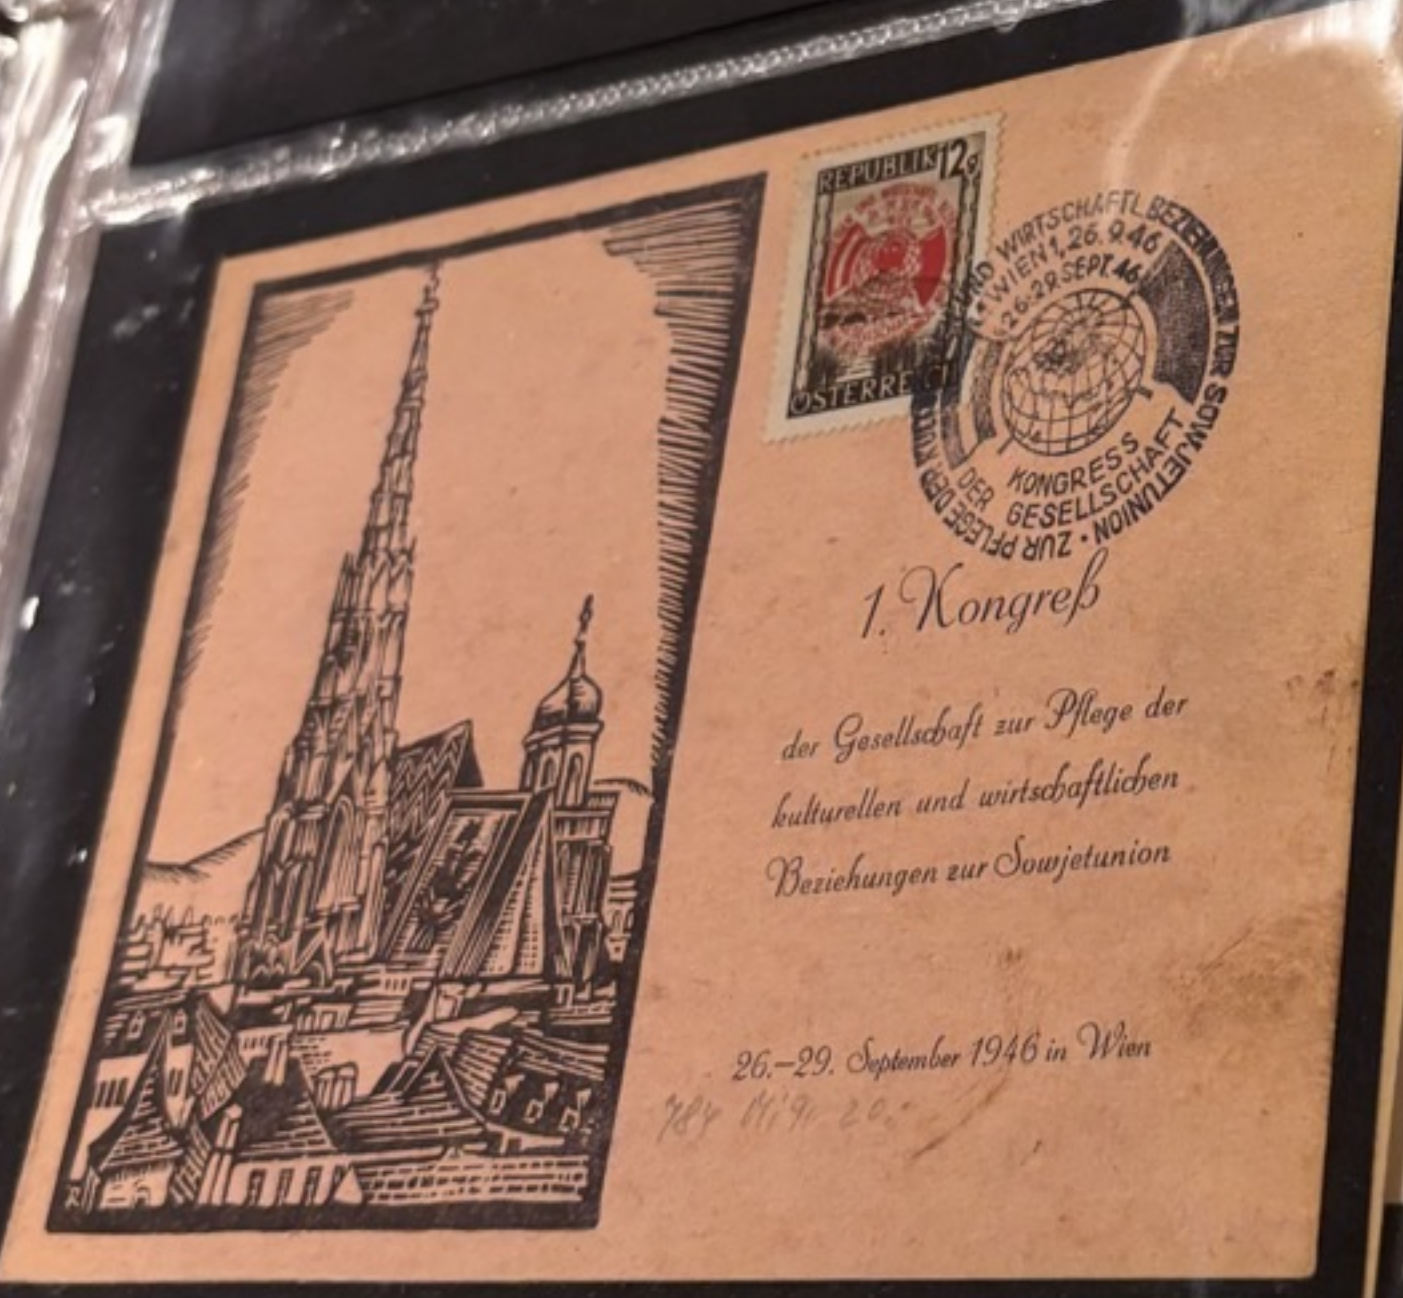 REPUBLIK 12g
ÖSTERREICH
UND WIRTSCHAFTL. BEZIEHUNGEN ZUR SOWJETUNION • ZUR PFLEGE DER
WIEN 1, 26.9.46
26.-29. SEPT. 46
KONGRESS
DER GESELLSCHAFT
1. Kongreß
der Gesellschaft zur Pflege der
kulturellen und wirtschaftlichen
Beziehungen zur Sowjetunion
26.–29. September 1946 in Wien
784